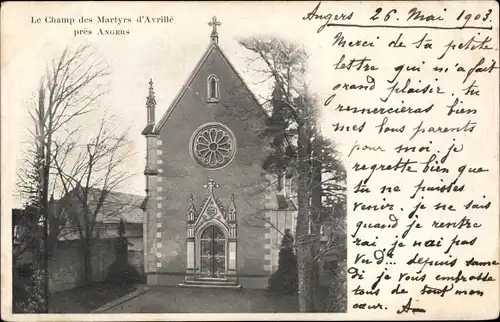 Le Champ des Martyrs d'Avrillé
près ANGERS
Angers 26. Mai 1903.
Merci de ta petite
lettre qui m'a fait
grand plaisir. Tu
remercieras bien
tes bons parents
pour moi. je
regrette bien que
tu ne puisses
venir. je ne sais
quand je rentre
rai, je n'ai pas
depuis same
di je vous embrasse
de tout mon
cœur.